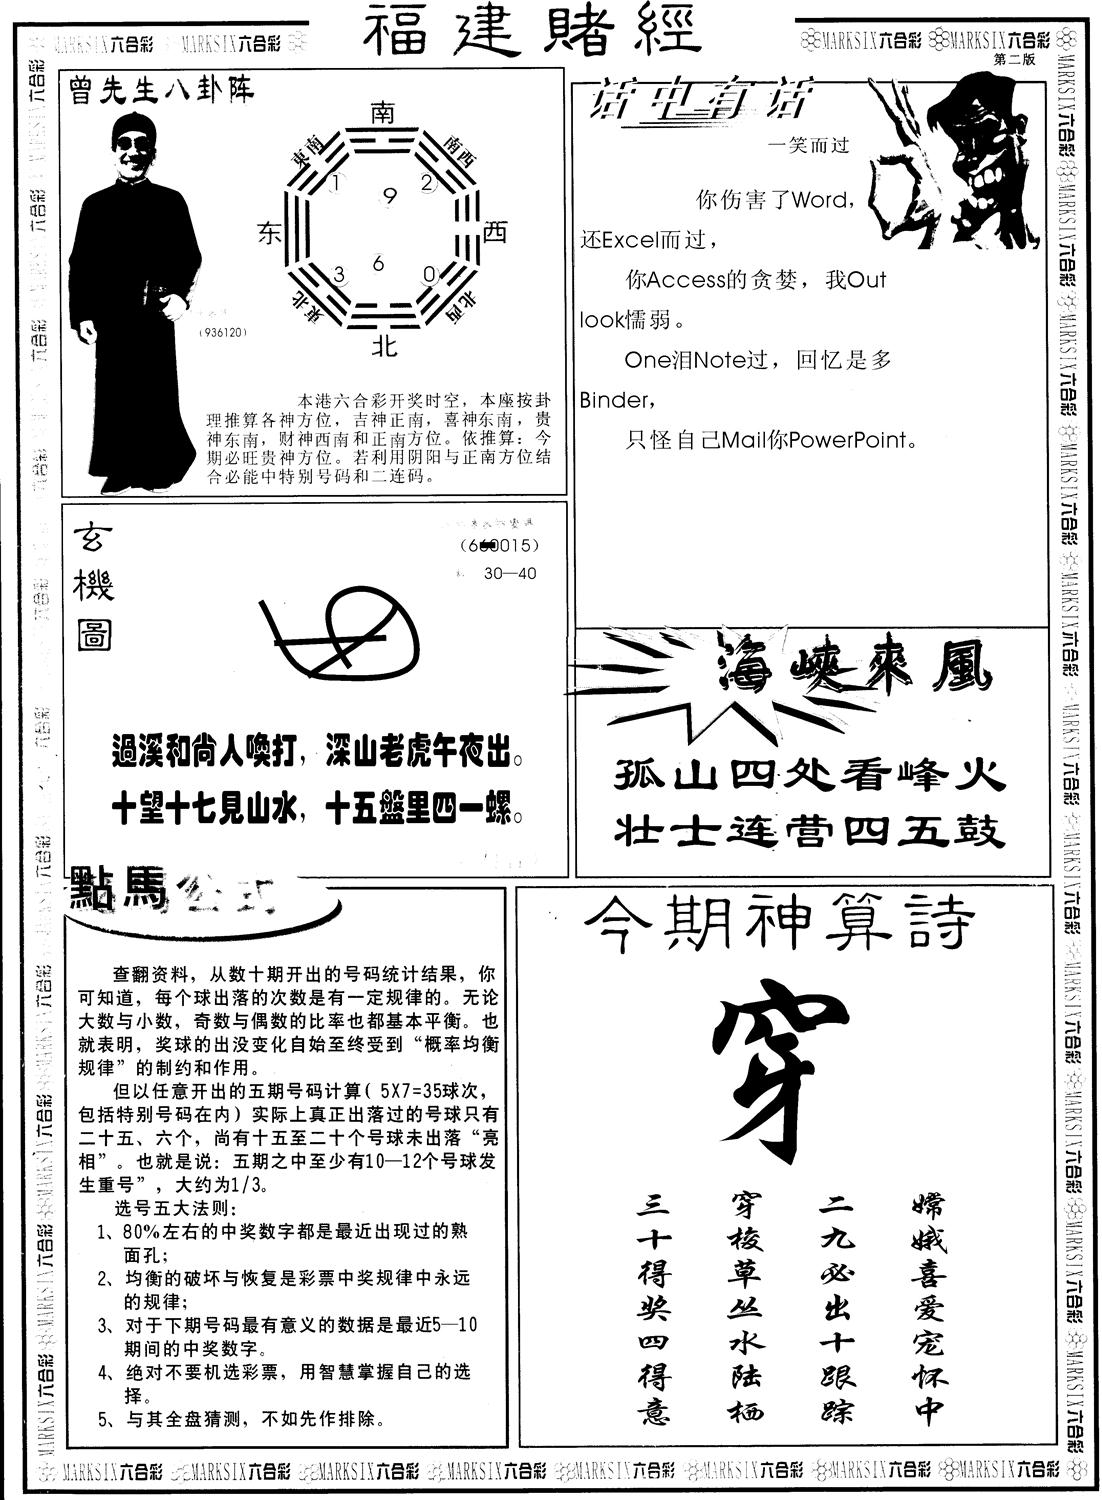 福建賭經
MARKSIX六合彩 MARKSIX六合彩
MARKSIX六合彩 MARKSIX六合彩
第二版
曾先生八卦阵
南
東南
南西
1
9
2
东
西
3
6
0
東北
北西
北
(936120)
本港六合彩开奖时空，本座按卦
理推算各神方位，吉神正南，喜神东南，贵
神东南，财神西南和正南方位。依推算：今
期必旺贵神方位。若利用阴阳与正南方位结
合必能中特别号码和二连码。
话中有话
一笑而过
你伤害了Word，
还Excel而过，
你Access的贪婪，我Out
look懦弱。
One泪Note过，回忆是多
Binder，
只怪自己Mail你PowerPoint。
玄機圖
30—40
過溪和尚人喚打，深山老虎午夜出。
十望十七見山水，十五盤里四一螺。
海峽來風
孤山四处看峰火
壮士连营四五鼓
點馬公式
查翻资料，从数十期开出的号码统计结果，你
可知道，每个球出落的次数是有一定规律的。无论
大数与小数，奇数与偶数的比率也都基本平衡。也
就表明，奖球的出没变化自始至终受到“概率均衡
规律”的制约和作用。
但以任意开出的五期号码计算( 5X7=35球次，
包括特别号码在内）实际上真正出落过的号球只有
二十五、六个，尚有十五至二十个号球未出落“亮
相”。也就是说：五期之中至少有10—12个号球发
生重号”，大约为1/3。
选号五大法则：
1、80%左右的中奖数字都是最近出现过的熟
面孔；
2、均衡的破坏与恢复是彩票中奖规律中永远
的规律；
3、对于下期号码最有意义的数据是最近5—10
期间的中奖数字。
4、绝对不要机选彩票，用智慧掌握自己的选
择。
5、与其全盘猜测，不如先作排除。
今期神算詩
穿
嫦娥喜爱宠怀中
二九必出十跟踪
穿梭草丛水陆栖
三十得奖四得意
MARKSIX六合彩 MARKSIX六合彩 MARKSIX六合彩 MARKSIX六合彩 MARKSIX六合彩 MARKSIX六合彩 MARKSIX六合彩 MARKSIX六合彩